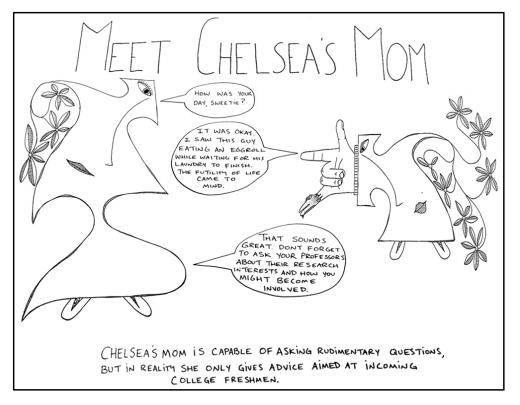 MEET CHELSEA'S MOM
HOW WAS YOUR
DAY, SWEETIE?
IT WAS OKAY.
I SAW THIS GUY
EATING AN EGGROLL
WHILE WAITING FOR HIS
LAUNDRY TO FINISH.
THE FUTILITY OF LIFE
CAME TO
MIND.
THAT SOUNDS
GREAT. DON'T FORGET
TO ASK YOUR PROFESSORS
ABOUT THEIR RESEARCH
INTERESTS AND HOW YOU
MIGHT BECOME
INVOLVED.
CHELSEA'S MOM IS CAPABLE OF ASKING RUDIMENTARY QUESTIONS,
BUT IN REALITY SHE ONLY GIVES ADVICE AIMED AT INCOMING
COLLEGE FRESHMEN.